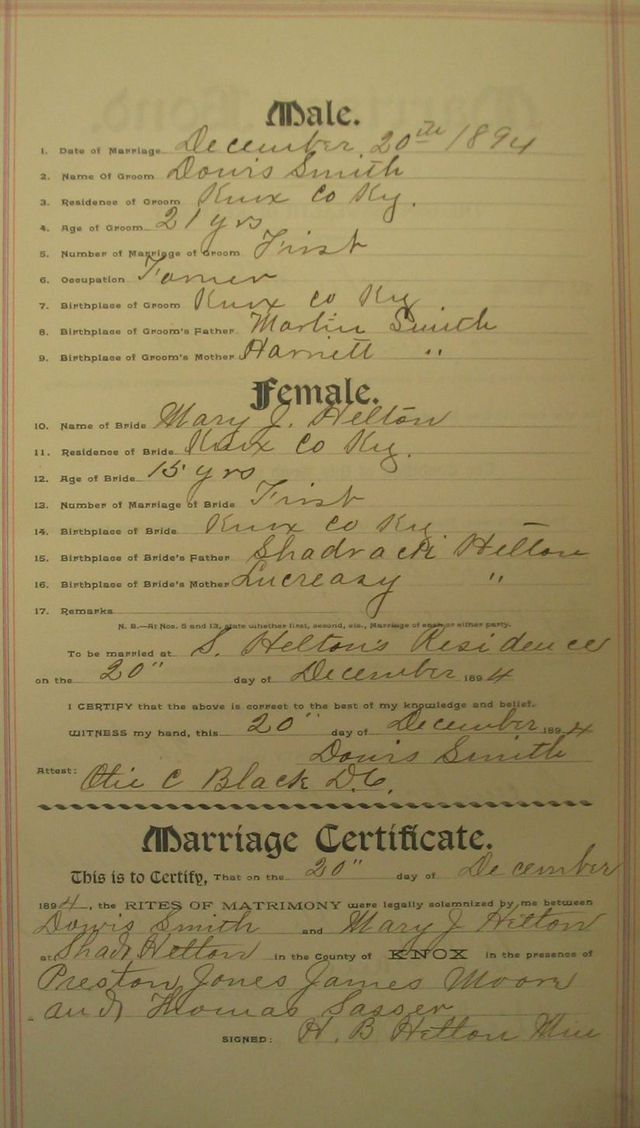 Male.
1. Date of Marriage December 20th 1894
2. Name Of Groom Dowis Smith
3. Residence of Groom Knox Co Ky.
4. Age of Groom 21 yrs
5. Number of Marriage of Groom First
6. Occupation Farmer
7. Birthplace of Groom Knox Co Ky
8. Birthplace of Groom's Father Martin Smith
9. Birthplace of Groom's Mother Harriett "
Female.
10. Name of Bride Mary J. Helton
11. Residence of Bride Knox Co Ky.
12. Age of Bride 15 yrs
13. Number of Marriage of Bride First
14. Birthplace of Bride Knox Co Ky
15. Birthplace of Bride's Father Shadrach Helton
16. Birthplace of Bride's Mother Lucreasy "
17. Remarks
N. B.—At Nos. 5 and 13, state whether first, second, etc., Marriage of each or either party.
To be married at S. Helton's Residence
on the 20" day of December 1894
I CERTIFY that the above is correct to the best of my knowledge and belief.
WITNESS my hand, this 20" day of December 1894
Dowis Smith
Attest: Otie C Black D.C.
Marriage Certificate.
This is to Certify, That on the 20" day of December
1894, the RITES OF MATRIMONY were legally solemnized by me between
Dowis Smith and Mary J Helton
at Shad Helton in the County of KNOX in the presence of
Preston Jones James Moore
and Thomas Sasser
SIGNED: H. B Helton Min